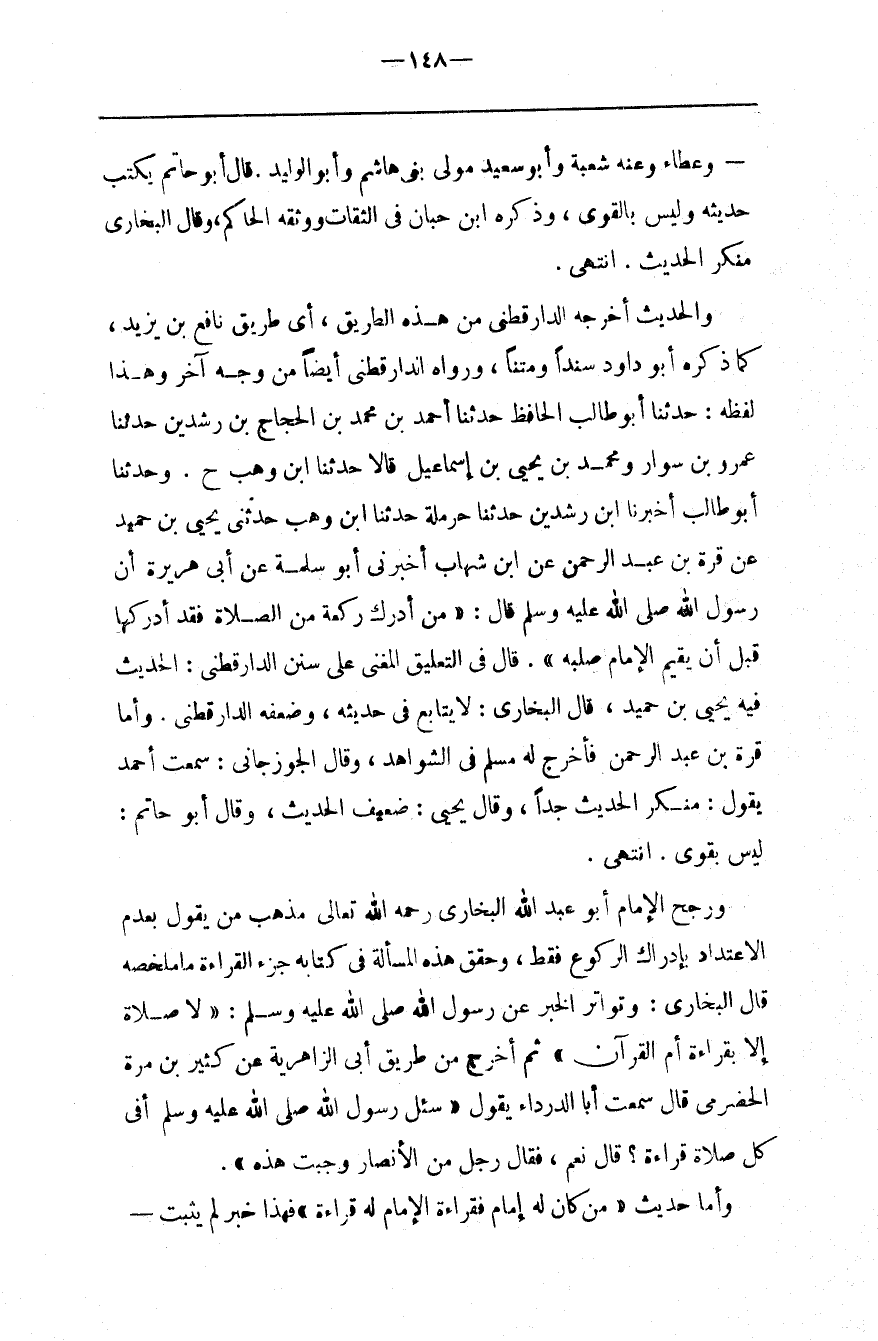 —١٤٨—
— وعطاء وعنه شعبة وأبو سعيد مولى بنى هاشم وأبو الوليد . قال أبو حاتم يكتب
حديثه وليس بالقوى ، وذكره ابن حبان فى الثقات ووثقه الحاكم ، وقال البخارى
منكر الحديث . انتهى .
والحديث أخرجه الدارقطنى من هـذه الطريق ، أى طريق نافع بن يزيد ،
كما ذكره أبو داود سنداً ومتناً ، ورواه الدارقطنى أيضاً من وجـه آخر وهـذا
لفظه : حدثنا أبو طالب الحافظ حدثنا أحمد بن محمد بن الحجاج بن رشدين حدثنا
عمرو بن سوار ومحمـد بن يحيى بن إسماعيل قالا حدثنا ابن وهب ح . وحدثنا
أبو طالب أخبرنا ابن رشدين حدثنا حرملة حدثنا ابن وهب حدثنى يحيى بن حميد
عن قرة بن عبـد الرحمن عن ابن شهاب أخبرنى أبو سلمـة عن أبى هريرة أن
رسول الله صلى الله عليه وسلم قال : « من أدرك ركعة من الصـلاة فقد أدركها
قبل أن يقيم الإمام صلبه » . قال فى التعليق المغنى على سنن الدارقطنى : الحديث
فيه يحيى بن حميد ، قال البخارى : لا يتابع فى حديثه ، وضعفه الدارقطنى . وأما
قرة بن عبد الرحمن فأخرج له مسلم فى الشواهد ، وقال الجوزجانى : سمعت أحمد
يقول : منـكر الحديث جداً ، وقال يحيى : ضعيف الحديث ، وقال أبو حاتم :
ليس بقوى . انتهى .
ورجح الإمام أبو عبد الله البخارى رحمه الله تعالى مذهب من يقول بعدم
الاعتداد بإدراك الركوع فقط ، وحقق هذه المسألة فى كتابه جزء القراءة ماملخصه
قال البخارى : وتواتر الخبر عن رسول الله صلى الله عليه وسـلم : « لا صـلاة
إلا بقراءة أم القرآن » ثم أخرج من طريق أبى الزاهرية عن كثير بن مرة
الحضرمى قال سمعت أبا الدرداء يقول « سئل رسول الله صلى الله عليه وسلم أفى
كل صلاة قراءة ؟ قال نعم ، فقال رجل من الأنصار وجبت هذه » .
وأما حديث « من كان له إمام فقراءة الإمام له قراءة » فهذا خبر لم يثبت —